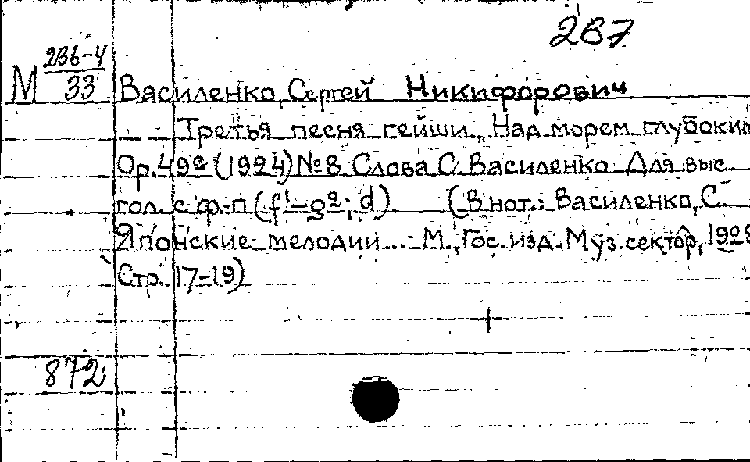 287
М 286-4
33
Василенко, Сергей Никифорович
Третья песня гейши. Над морем глубоким
Op. 49а (1924) №8 Слова С. Василенко. Для выс.
гол. с ф-п (f¹-g²; d) (В нот.: Василенко, С.
Японские мелодии... М., Гос. изд. Муз. сектор,
Стр. 17-19)
872